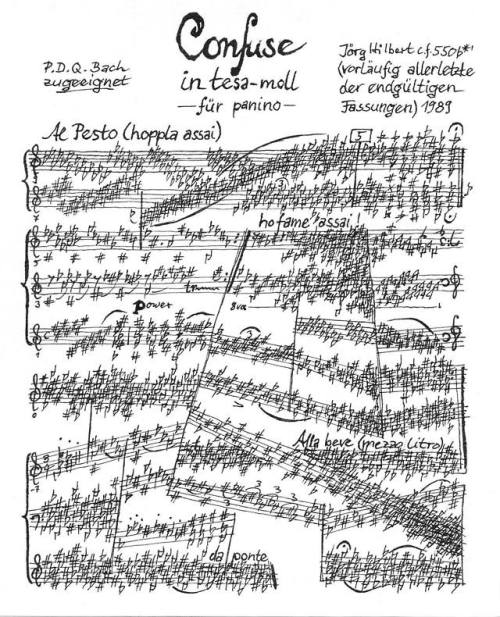 Confuse
in tesa-moll
—für panino—
P.D.Q. Bach
zugeeignet
Jörg Hilbert c.f. 550b*¹
(vorläufig allerletzte
der endgültigen
Fassungen) 1989
Al Pesto (hoppla assai)
5
ho fame assai!
power
8va
Alla beve (mezzo litro)
3 3 3
da ponte